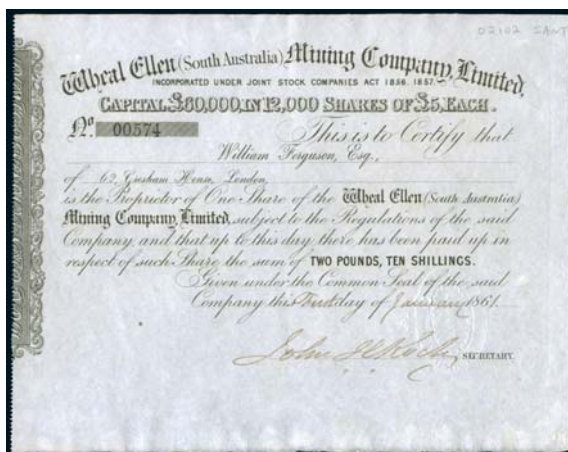 02102 SANT
Wheal Ellen (South Australia) Mining Company, Limited,
INCORPORATED UNDER JOINT STOCK COMPANIES ACT 1856. 1857.
CAPITAL £60,000, IN 12,000 SHARES OF £5, EACH.
No. 00574 This is to Certify that
William Ferguson, Esq.,
of 62, Gresham House, London,
is the Proprietor of One Share of the Wheal Ellen (South Australia)
Mining Company, Limited, subject to the Regulations of the said
Company, and that up to this day there has been paid up in
respect of such Share the sum of TWO POUNDS, TEN SHILLINGS.
Given under the Common Seal of the said
Company this day of January 1861
John SECRETARY.